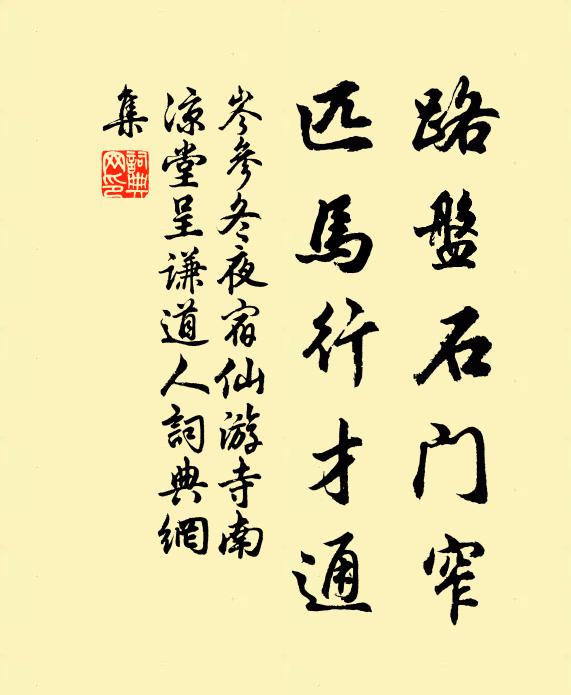 路盤石门窄
匹馬行才通
岑參冬夜宿仙游寺南
凉堂呈谦道人詞典網
集
詞典
网印